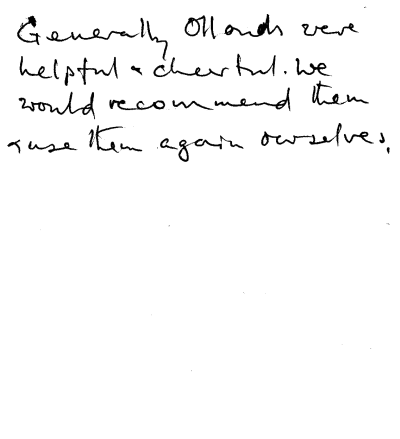 Generally Ollands were
helpful & cheerful. We
would recommend them
& use them again ourselves.